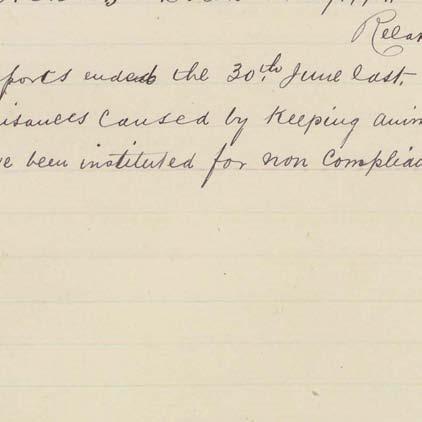 Relat
ports ended the 30th June last.
isances caused by keeping anim
ve been instituted for non Complian